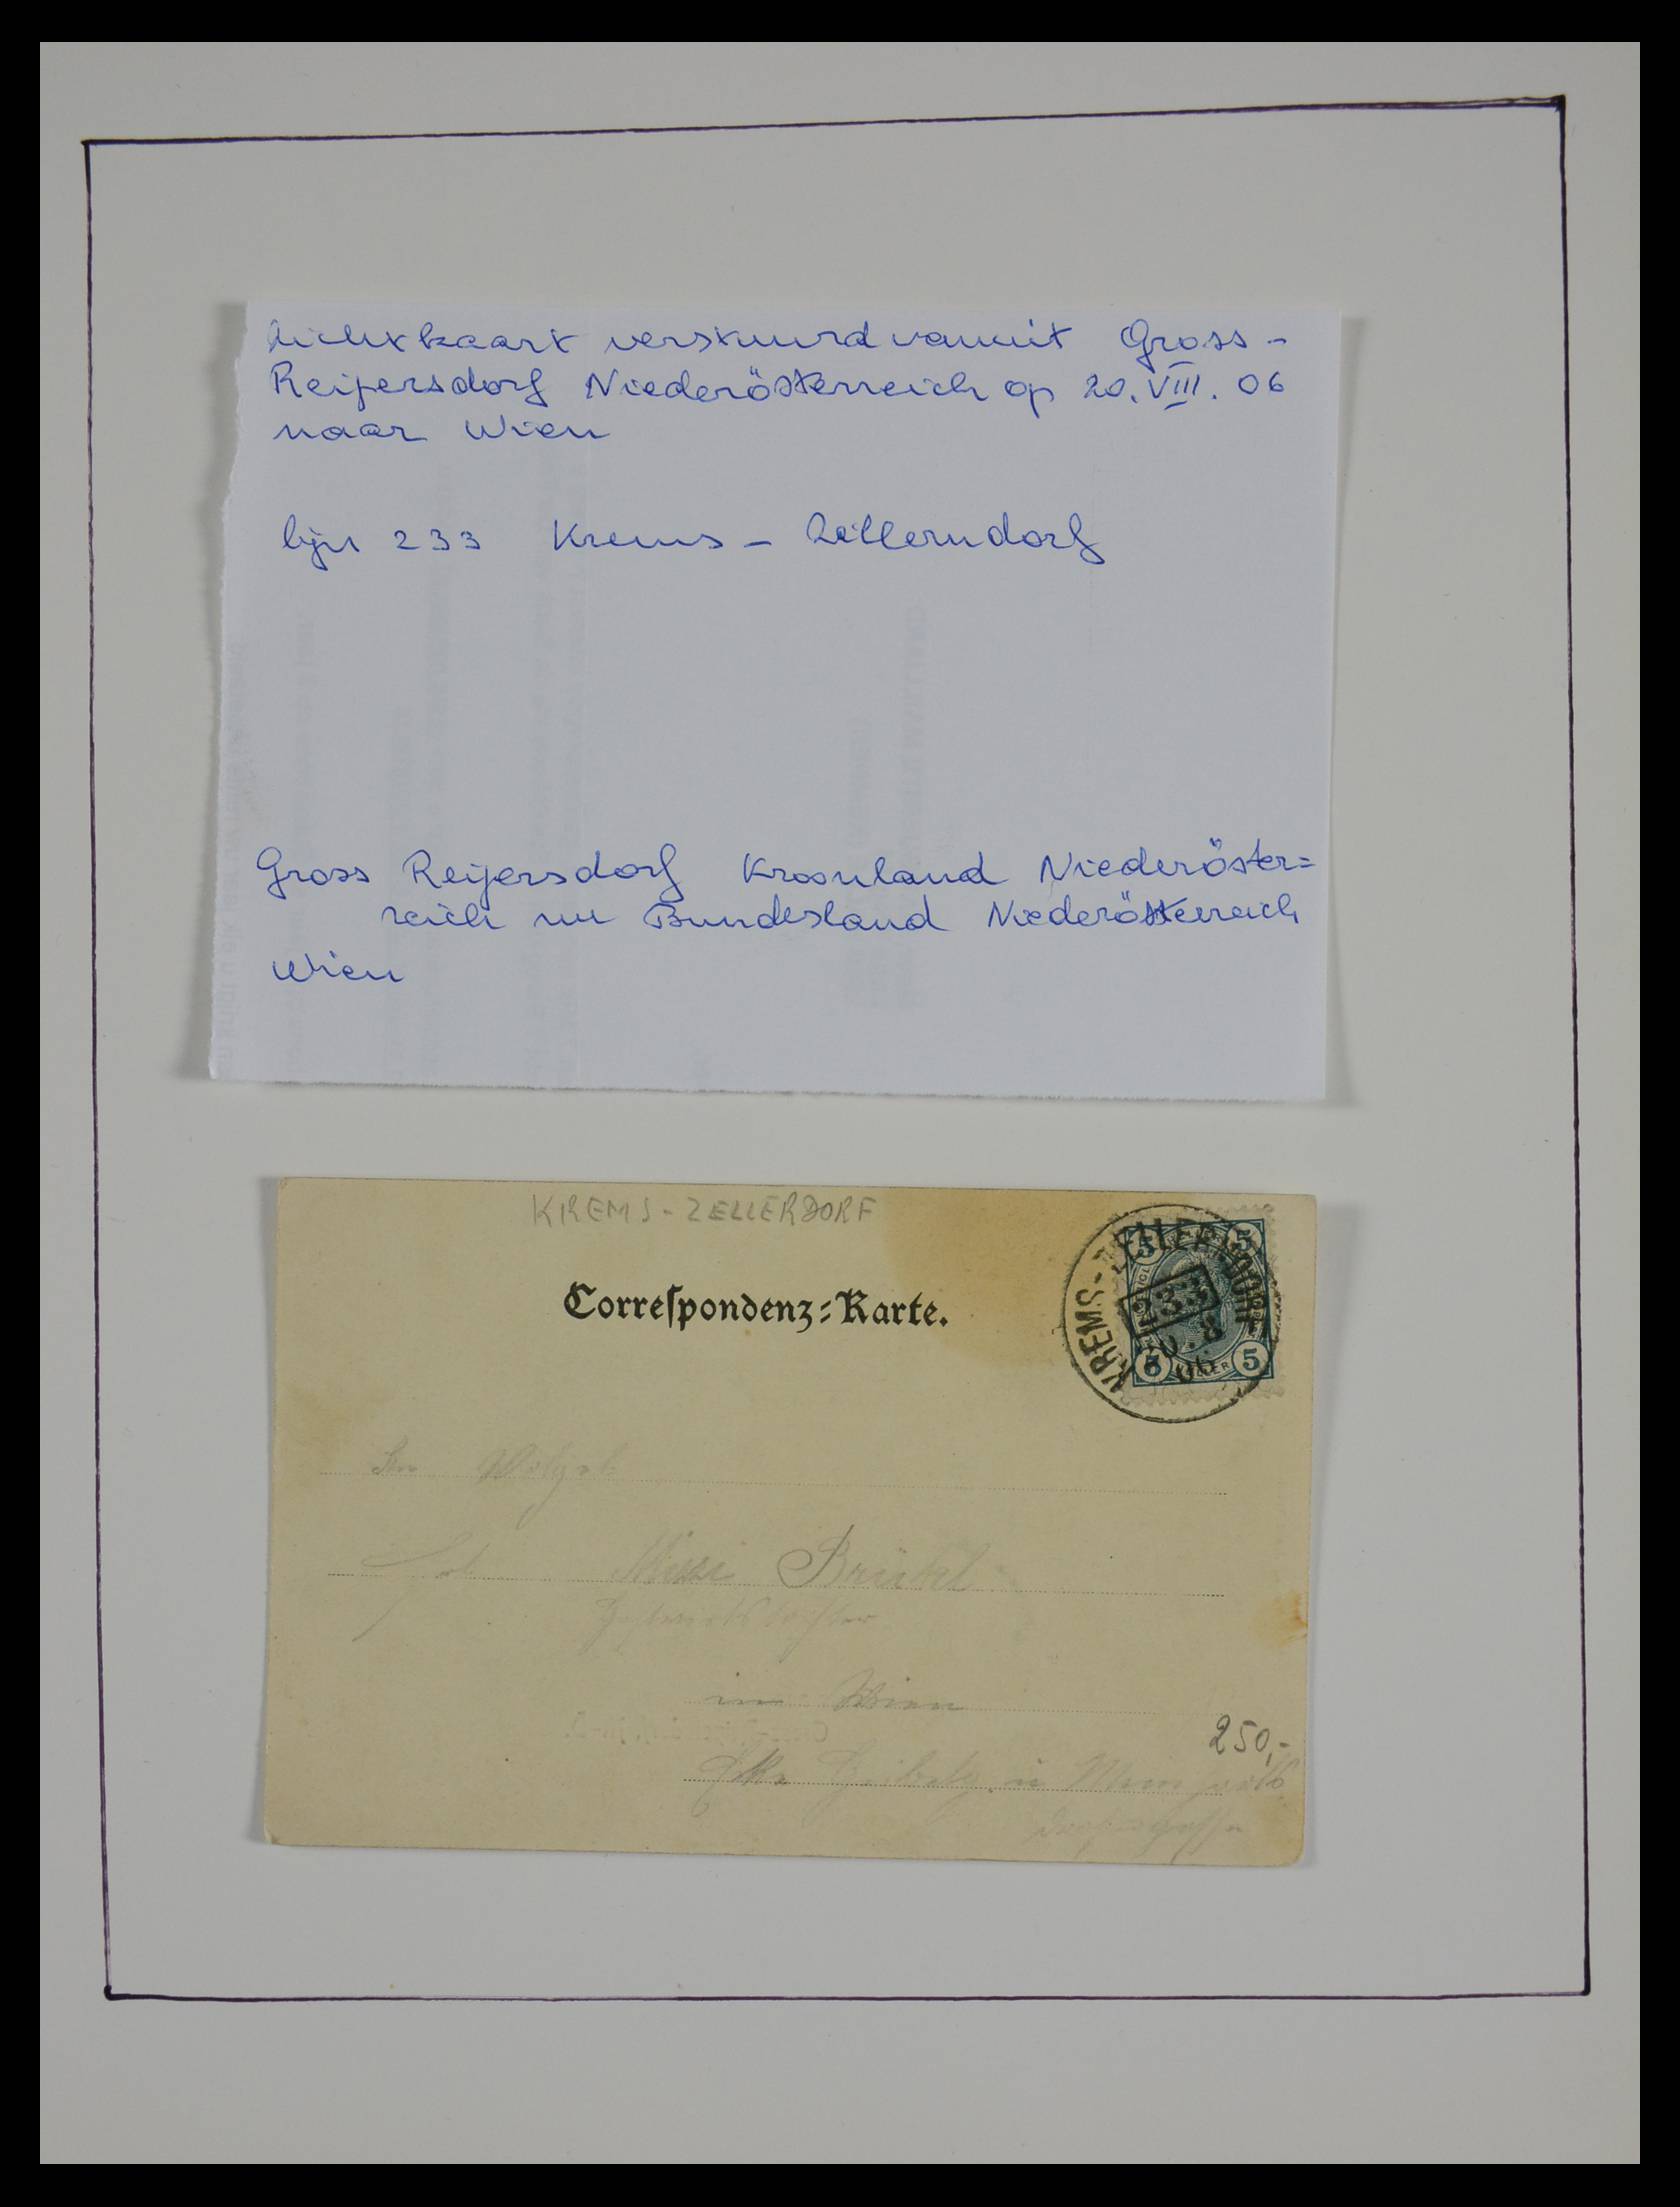 lichtkaart verstuurd vanuit Gross-
Reijersdorf Niederösterreich op 20.VIII.06
naar Wien
lijn 233 Krems - Zellerndorf
Gross Reijersdorf Kroonland Niederöster=
reich nu Bundesland Niederösterreich
Wien
KREMS-ZELLERDORF
Correspondenz-Karte.
KREMS-ZELLERNDORF
233
5 5
5 5
Missi
in Wien
250,-